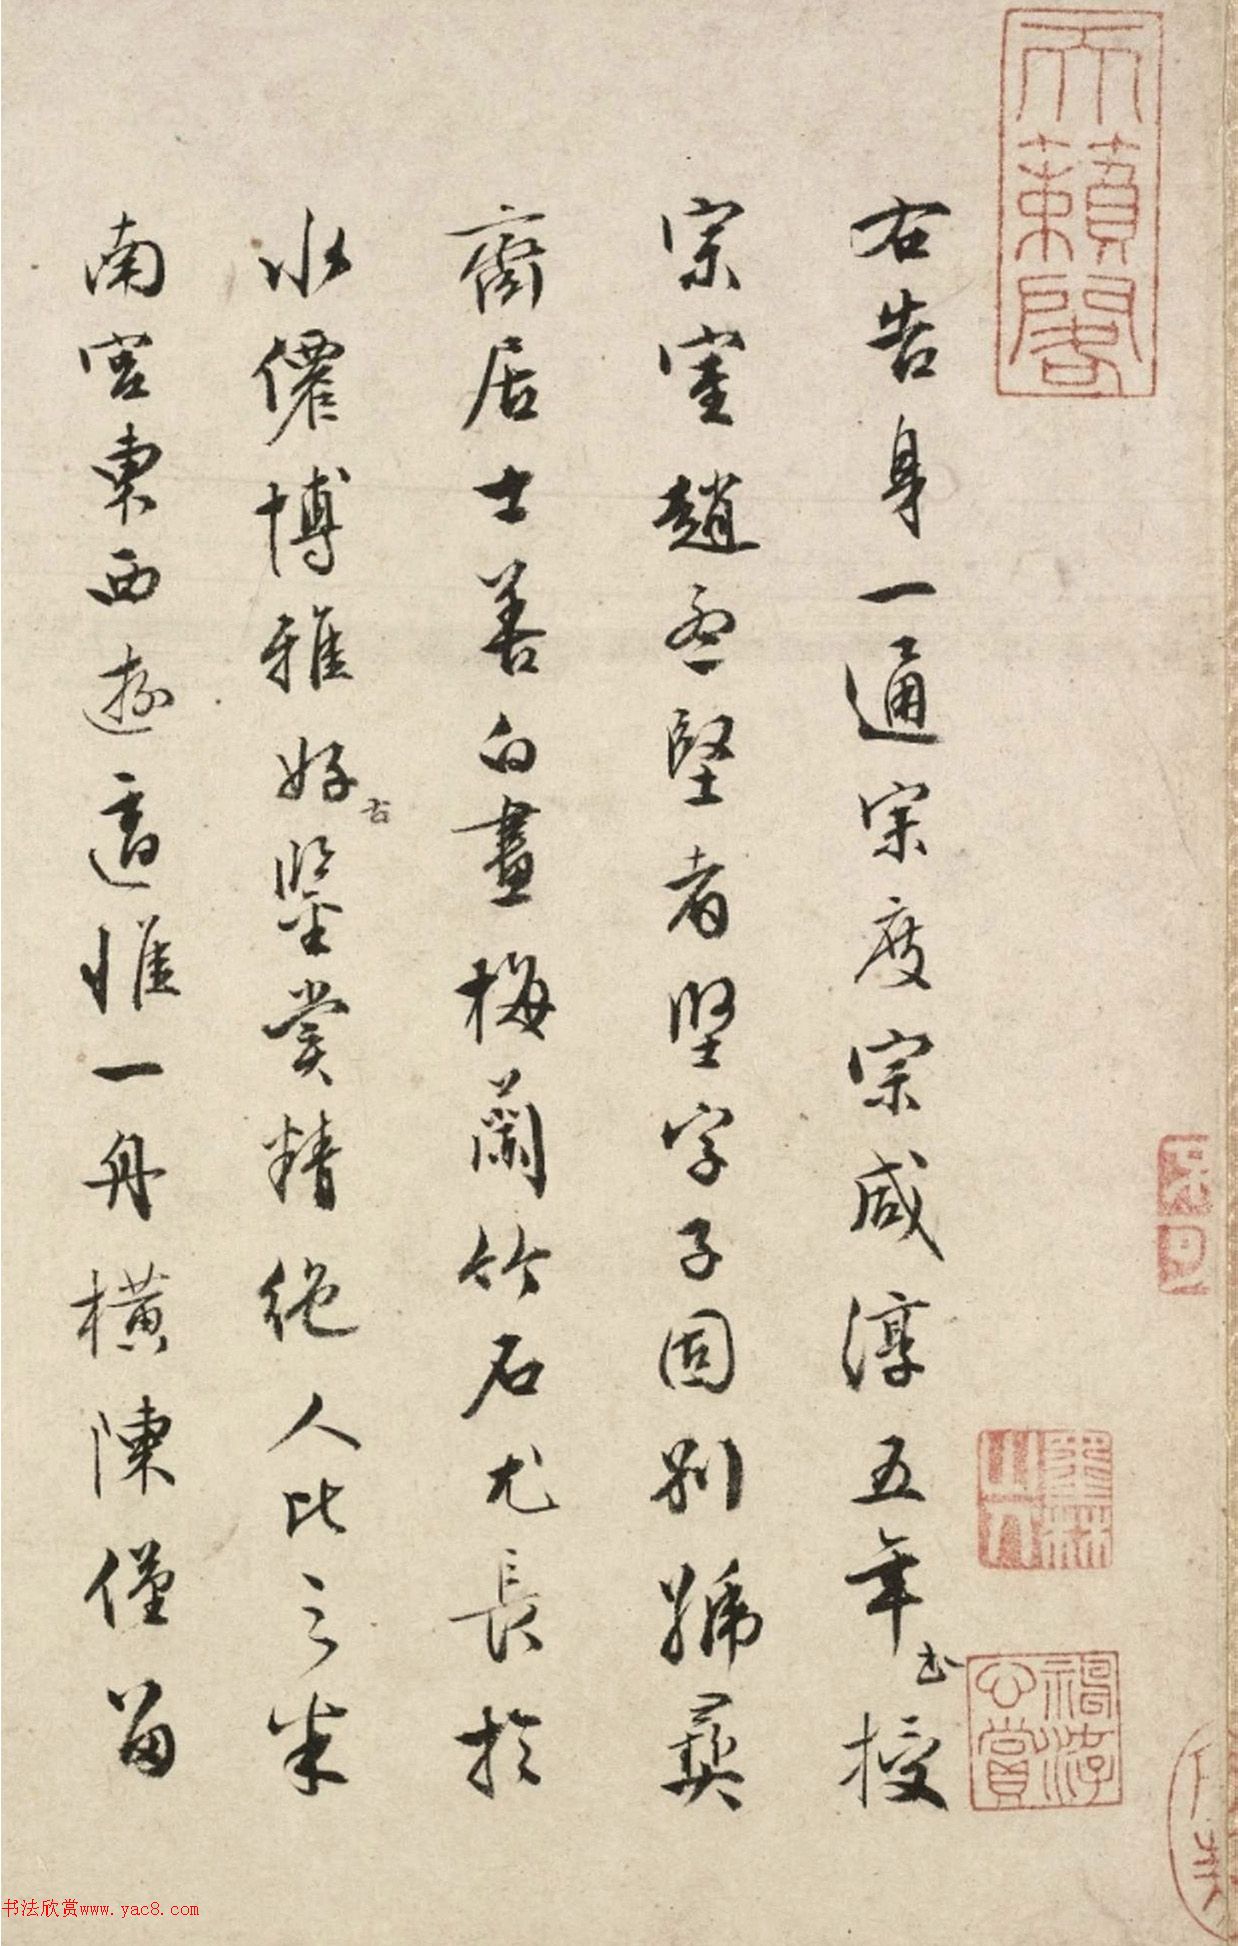 右告身一通宋度宗咸淳五年出授
宗室趙孟堅者堅字子固別號彝
齋居士善白畫梅蘭竹石尤長於
水僊博雅好古鑒賞精絕人比之米
南宮東西遊適惟一舟橫陳僅留
天籟閣
墨林山人
神游心賞
子孫
书法欣赏www.yac8.com